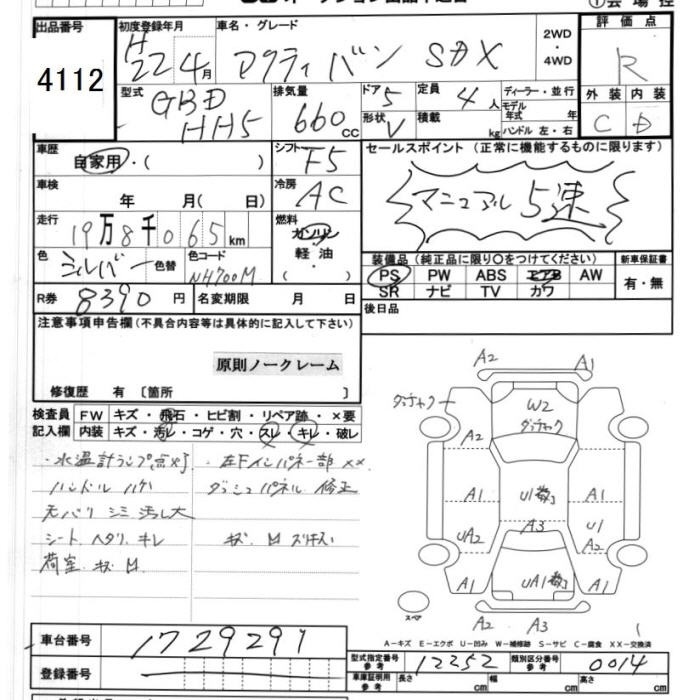 出品番号
4112
初度登録年月
H
22 4月
車名・グレード
アクティ バン SDX
2WD
・
4WD
評価点
R
型式
GBD
HH5
排気量
660cc
ドア
5
定員
4人
形状
V
積載
kg
ディーラー・並行
モデル
年式 年
ハンドル 左・右
外装 内装
C D
車歴
自家用・( )
シフト
F5
セールスポイント (正常に機能するものに限ります)
マニュアル 5速
車検
年 月( 日)
冷房
AC
走行
19万8千065km
燃料
ガソリン
軽油
( ・ )
色
シルバー
色替
色コード
NH700M
装備品 (純正品に限り○をつけてください)
PS PW ABS エアB AW
SR ナビ TV カワ
新車保証書
有・無
R券
8390円
名変期限 月 日
後日品
注意事項申告欄(不具合内容等は具体的に記入して下さい)
原則ノークレーム
修復歴 有 〔箇所 〕
検査員 FW キズ・飛石・ヒビ割・リペア跡・×要
記入欄 内装 キズ・汚レ・コゲ・穴・スレ・キレ・破レ
・水温計ランプ点灯
ハンドル ハゲ
天バリ シミ 汚レ大
シート ヘタリ キレ
荷室 キズ M
・左下インパネ一部 ××
ダッシュパネル 修正
A2
A1
W2
A2
A1
A1
U1
A3
UA2
A2
A1
UA1
A1
A2
A3
スペア
A-キズ E-エクボ U-凹み W-補修跡 S-サビ C-腐食 XX-交換済
車台番号
1729291
登録番号
型式指定番号
参考
12252
類別区分番号
参考
0014
車庫証明用
参考
長さ cm
幅 cm
高さ cm